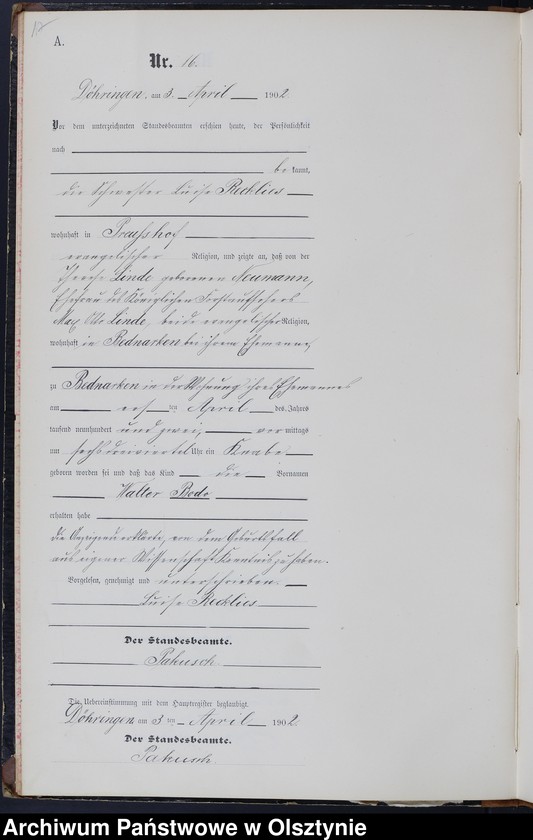 17
A.
Nr. 16.
Döhringen, am 3. April 1902.
Vor dem unterzeichneten Standesbeamten erschien heute, der Persönlichkeit
nach
be kannt,
die Schwester Luise Recklies
wohnhaft in Preußhof
evangelischer Religion, und zeigte an, daß von der
Therese Linde, geborenen Neumann,
Ehefrau des Königlichen Forstaufsehers
Max Otto Linde, beide evangelischer Religion,
wohnhaft in Bednarken bei ihrem Ehemanne,
zu Bednarken in der Wohnung ihres Ehemannes
am ersten April des Jahres
tausend neunhundert und zwei, vormittags
um sechs dreiviertel Uhr ein Knabe
geboren worden sei und daß das Kind die Vornamen
Walter Bodo
erhalten habe
die Anzeigende erklärte, von dem Geburtsfall
aus eigener Wissenschaft Kenntnis zu haben.
Vorgelesen, genehmigt und unterschrieben.
Luise Recklies
Der Standesbeamte.
Pahusch
Die Uebereinstimmung mit dem Hauptregister beglaubigt.
Döhringen am 3 ten April 1902.
Der Standesbeamte.
Pahusch.
Archiwum Państwowe w Olsztynie